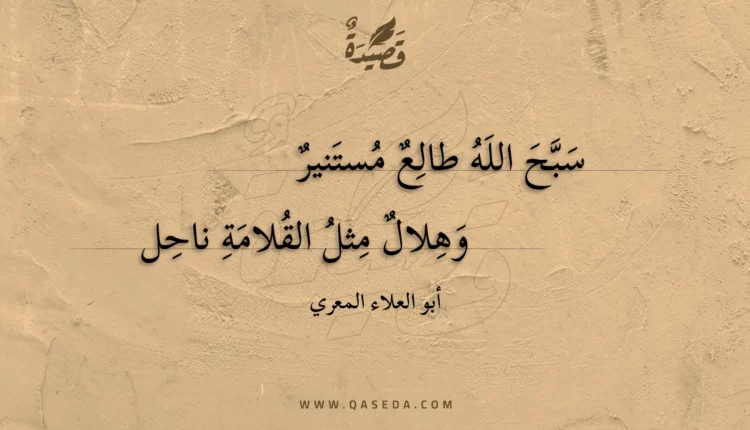 قَصِيدَةٌ
سَبَّحَ اللَهُ طالِعٌ مُستَنيرٌ
وَهِلالٌ مِثلُ القُلامَةِ ناحِل
أبو العلاء المعري
WWW.QASEDA.COM